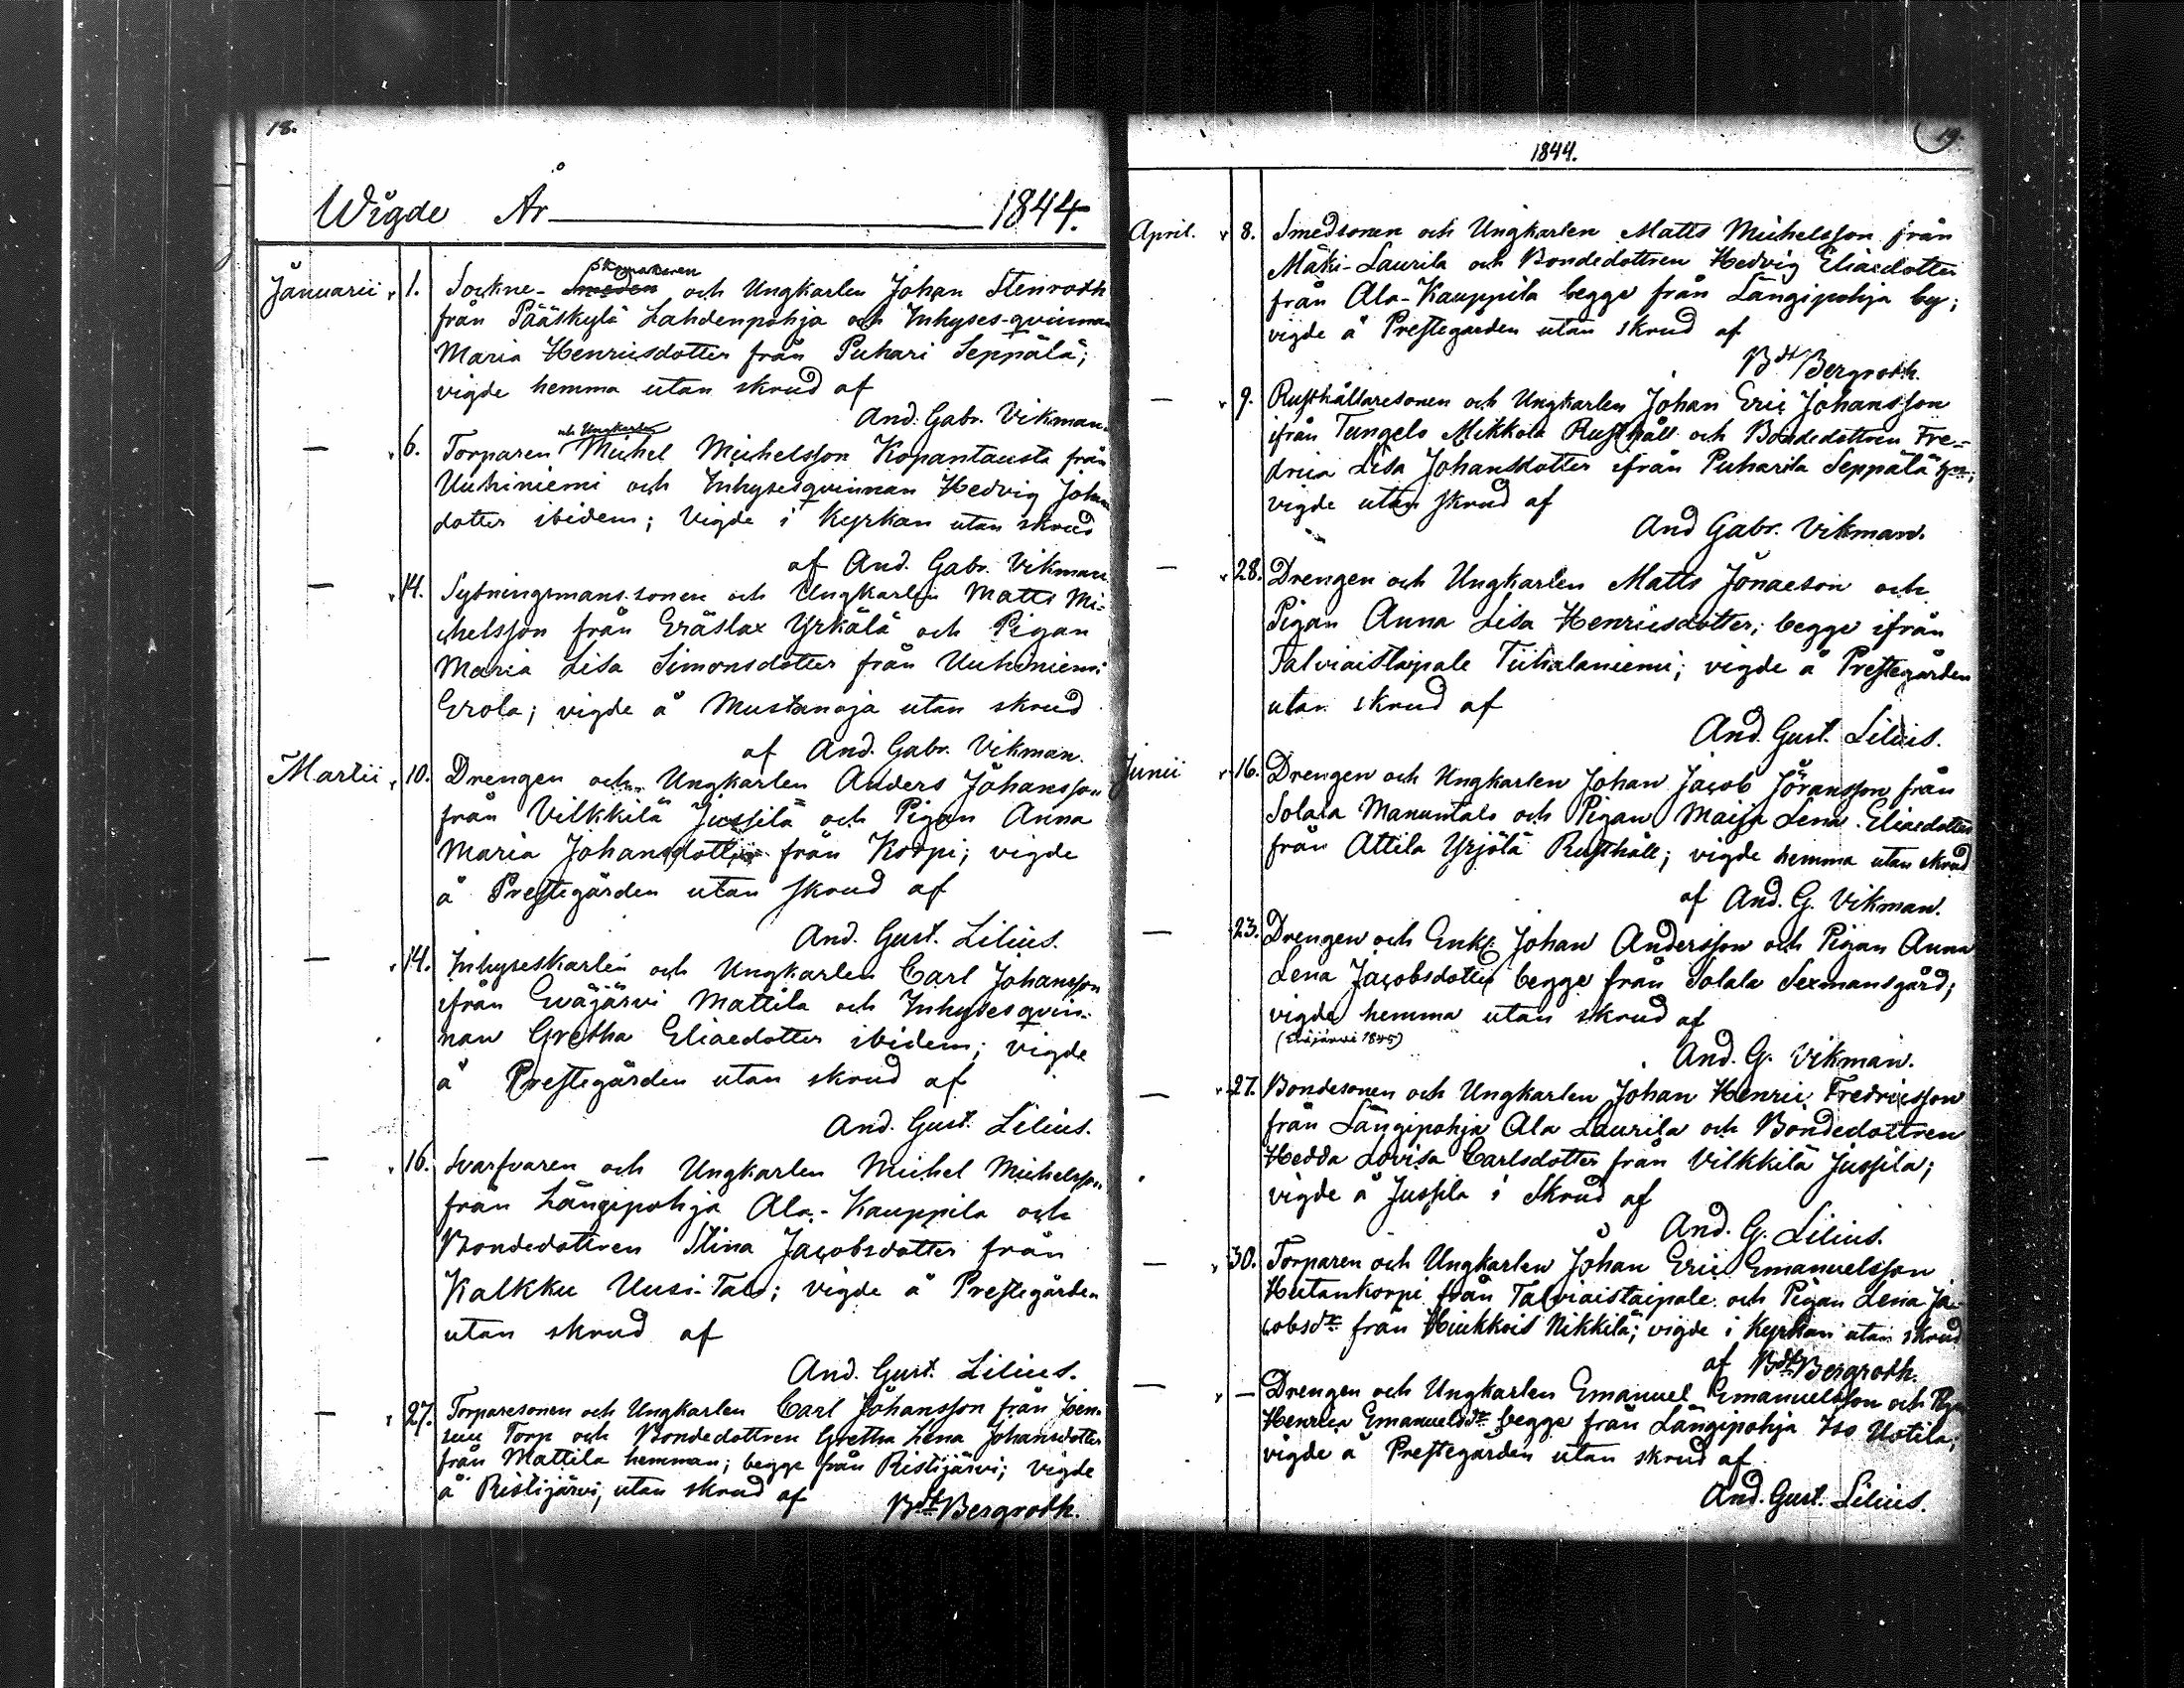 18.
Wigde År 1844.
Januarii 1. Sockne- Skomakaren Smeden och Ungkarlen Johan Stenroth
från Pääskylä Lahdenpohja och Inhyses-qvinnan
Maria Henricsdotter från Puhari Seppälä;
vigde hemma utan skrud af
And. Gabr. Vikman.
och Ungkarlen
— 6. Torparen Michel Michelsson Kopantausta från
Uuhiniemi och Inhysesqvinnan Hedvig Johans
dotter ibidem; Vigde i Kyrkan utan skrud
af And. Gabr. Vikman.
— 14. Sytningsmans-sonen och Ungkarlen Matts Mi-
chelsson från Eräslax Yrkälä och Pigan
Maria Lisa Simonsdotter från Uuhiniemi
Erola; vigde å Mustanoja utan skrud
af And. Gabr. Vikman.
Martii 10. Drengen och Ungkarlen Anders Johansson
från Vilkkilä Jussila och Pigan Anna
Maria Johansdotter från Korpi; vigde
å Prestegården utan skrud af
And. Gust. Lilius.
— 14. Inhyseskarlen och Ungkarlen Carl Johansson
ifrån Eräjärvi Mattila och Inhysesqvin-
nan Gretha Eliaedotter ibidem; vigde
å Prestegården utan skrud af
And. Gust. Lilius.
— 16. Svarfvaren och Ungkarlen Michel Michelsson
från Längipohja Ala-Kauppila och
Bondedottren Stina Jacobsdotter från
Kalkku Uusi-Talo; vigde å Prestegården
utan skrud af
And. Gust. Lilius.
— 27. Torparesonen och Ungkarlen Carl Johansson från
Torp och Bondedottren Gretha Lena Johansdotter
från Mattila hemman; begge från Ristijärvi; vigde
å Ristijärvi, utan skrud af Bdt Bergroth.
19.
1844.
April. 8. Smedsonen och Ungkarlen Matts Michelsson från
Mäki-Laurila och Bondedottren Hedvig Eliaedotter
från Ala-Kauppila begge från Längipohja by;
vigde å Prestegården utan skrud af
Bdt Bergroth.
— 9. Rusthållaresonen och Ungkarlen Johan Eric Johansson
ifrån Tungelo Mikkola Rusthåll och Bondedottren Fre-
drica Lisa Johansdotter ifrån Puharila Seppälä
vigde utan skrud af
And Gabr. Vikman.
— 28. Drengen och Ungkarlen Matts Jonaeson och
Pigan Anna Lisa Henricsdotter; begge ifrån
Talviaistaipale Tiihalaniemi; vigde å Prestegården
utan skrud af
And. Gust. Lilius.
Junii 16. Drengen och Ungkarlen Johan Jacob Göransson från
Solala Manuntalo och Pigan Maija Lena Eliaedotter
från Attila Yrjölä Rusthåll; vigde hemma utan skrud
af And. G. Vikman.
— 23. Drengen och Enkl. Johan Andersson och Pigan Anna
Lena Jacobsdotter begge från Solala Sexmansgård;
vigde hemma utan skrud af
(Eräjärvi 1845)
And. G. Vikman.
— 27. Bondesonen och Ungkarlen Johan Henric Fredricsson
från Längipohja Ala Laurila och Bondedottren
Hedda Lovisa Carlsdotter från Vilkkilä Jussila;
vigde å Jussila i Skrud af
And. G. Lilius.
— 30. Torparen och Ungkarlen Johan Eric Emanuelsson
Hutankorpi från Talviaistaipale och Pigan Lena Ja-
cobsdr från Hiukkois Nikkilä; vigde i Kyrkan utan skrud
af Bdt Bergroth.
— — Drengen och Ungkarlen Emanuel Emanuelsson och Pigan
Henrica Emanuelsdr begge från Längipohja Iso Uotila;
vigde å Prestegården utan skrud af
And. Gust. Lilius.